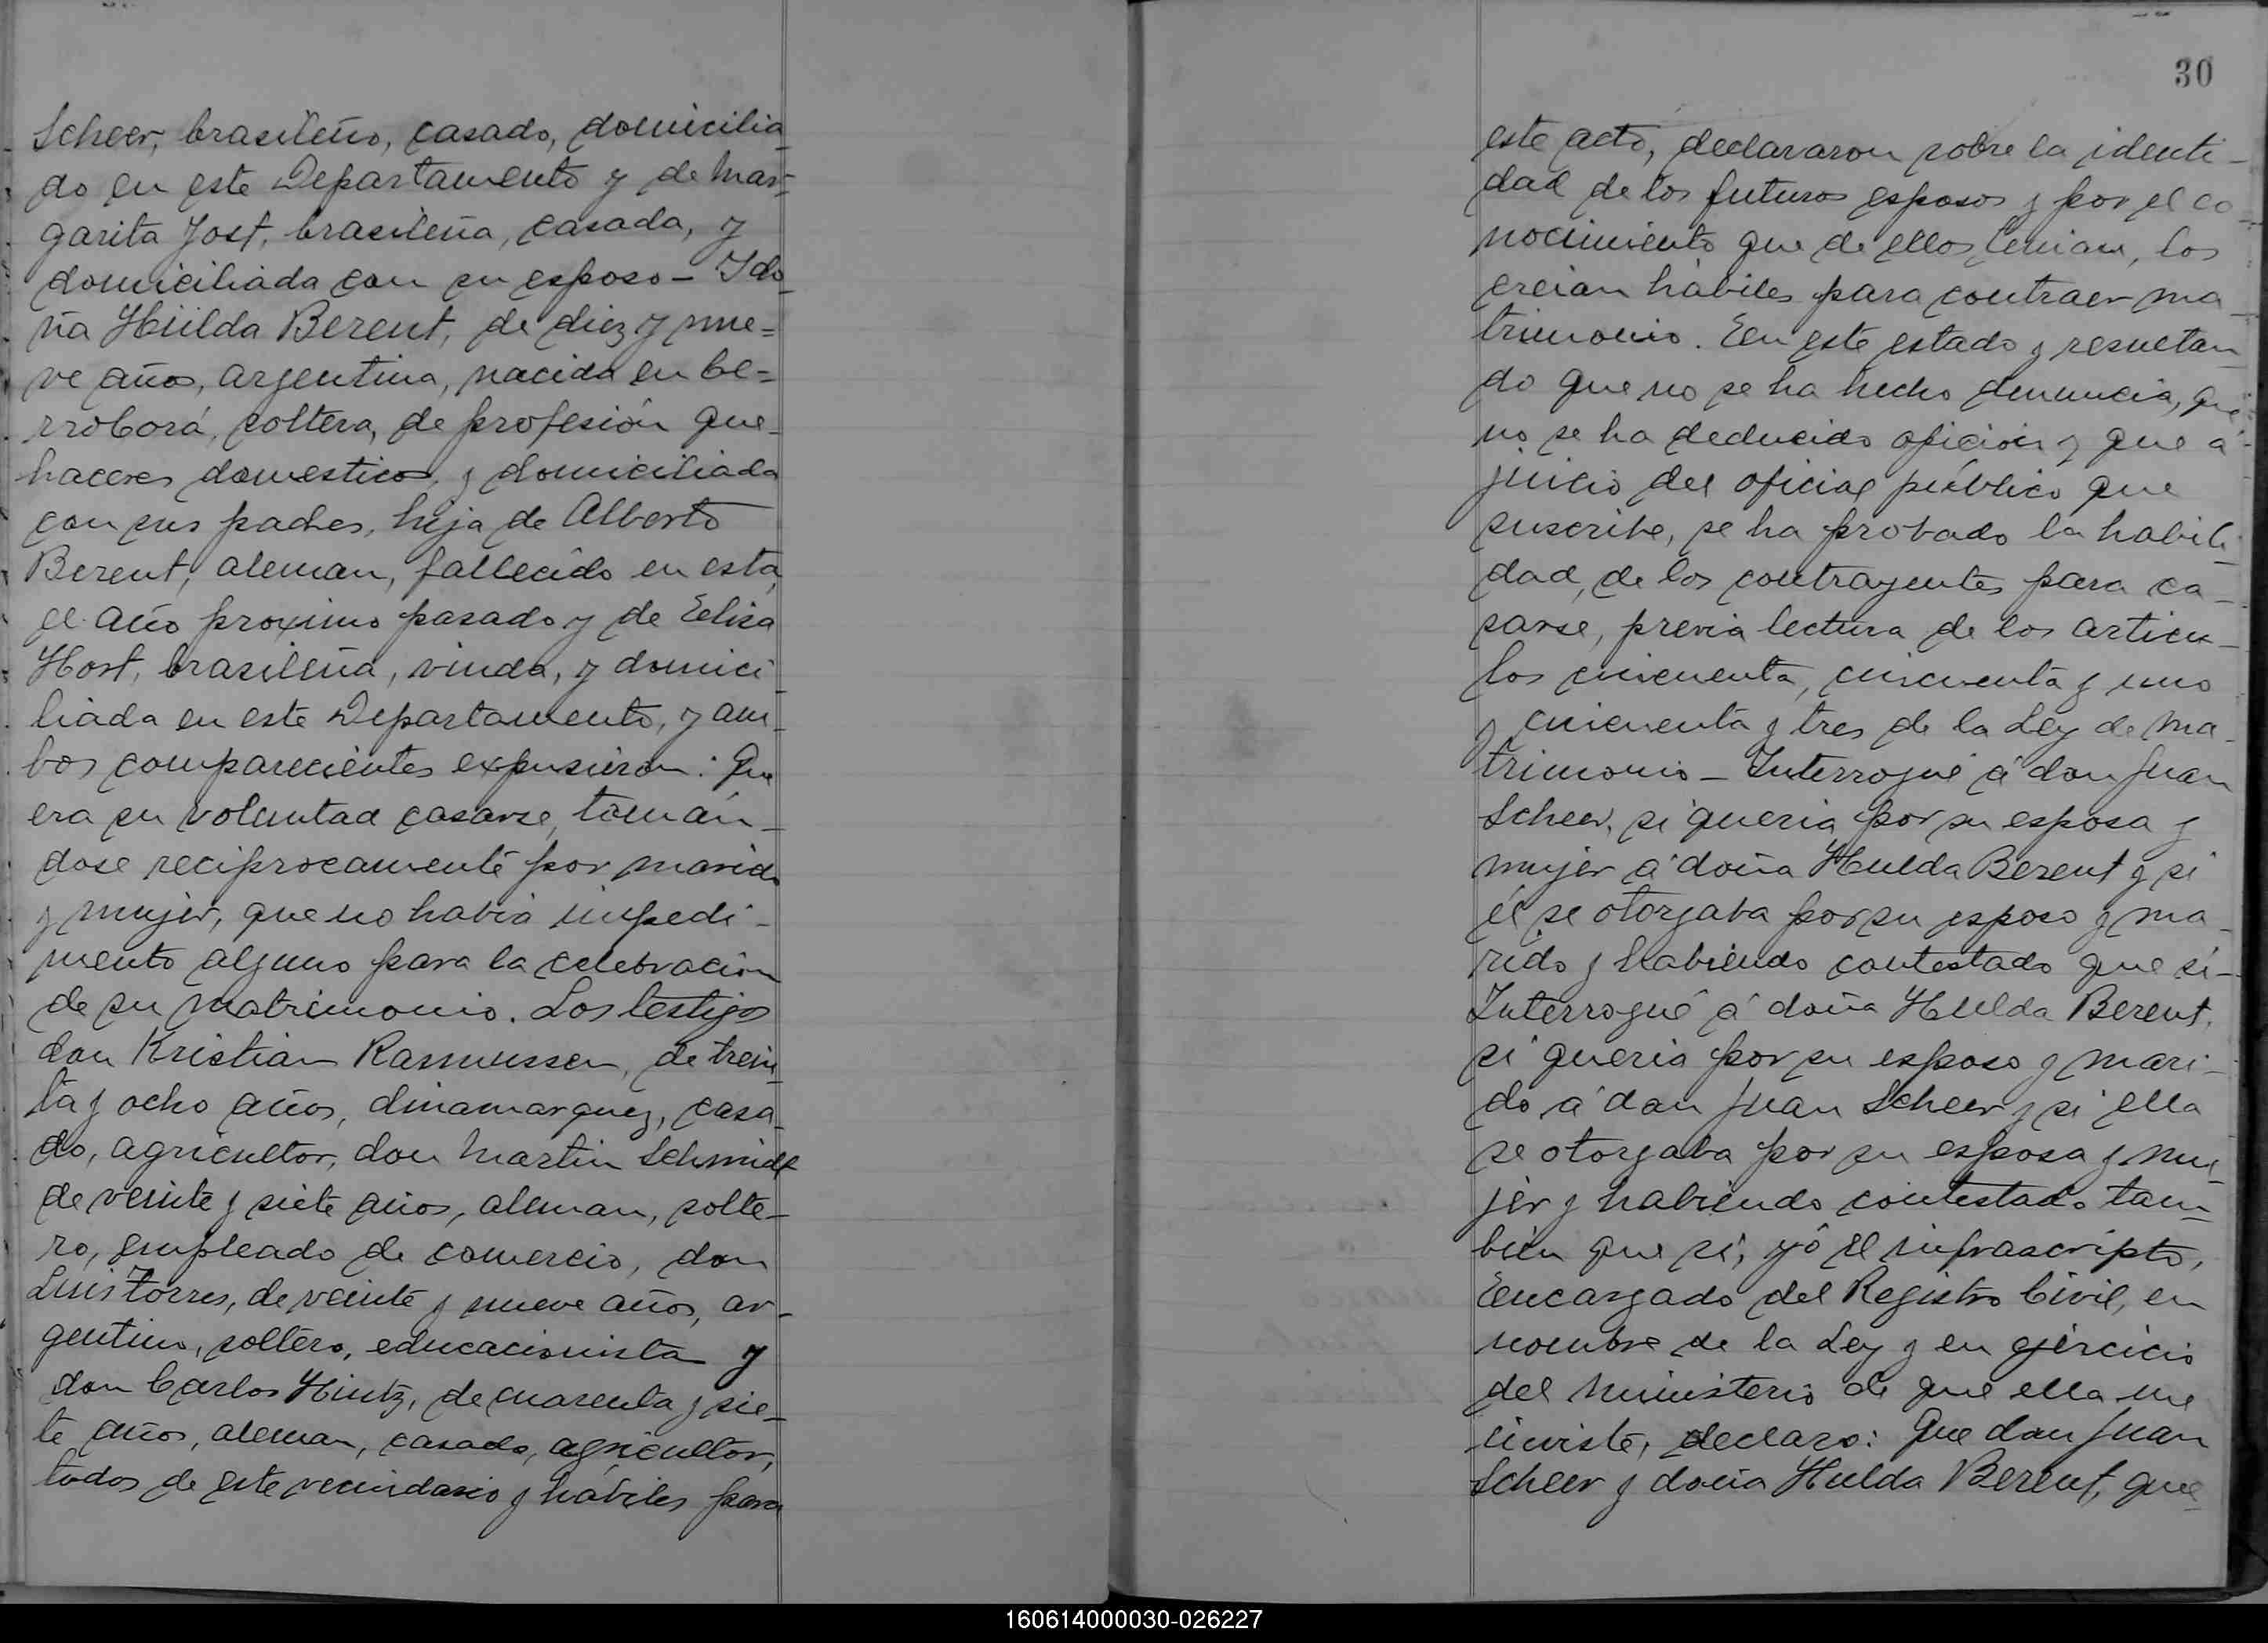 Scheer, brasileño, casado, domicilia-
do en este Departamento y de Mar-
garita Jost, brasileña, casada, y
domiciliada con su esposo - Y do-
ña Hulda Berent, de diez y nue=
ve años, argentina, nacida en Ce=
rro Corá, soltera, de profesión que-
haceres domesticos, y domiciliada
con sus padres, hija de Alberto
Berent, aleman, fallecido en esta,
el año proximo pasado y de Elisa
Host, brasileña, viuda, y domici-
liada en este Departamento, y am-
bos comparecientes expusieron: Que
era su voluntad casarse, tomán-
dose reciprocamente por marido
y mujer, que no había impedi-
mento alguno para la celebración
de su matrimonio. Los testigos
don Kristian Rasmussen, de trein-
ta y ocho años, dinamarquez, casa-
do, agricultor, don Martin Schmidt
de veinte y siete años, aleman, solte-
ro, empleado de comercio, don
Luis Torres, de veinte y nueve años, ar-
gentino, soltero, educacionista y
don Carlos Hintz, de cuarenta y sie-
te años, aleman, casado, agricultor,
todos de este vecindario y hábiles para
30
este acto, declararon sobre la identi-
dad de los futuros esposos y por el co-
nocimiento que de ellos tenian, los
creian hábiles para contraer ma-
trimonio. En este estado y resultan-
do que no se ha hecho denuncia, que
no se ha deducido oposición y que á
juicio del oficial público que
suscribe, se ha probado la habili-
dad, de los contrayentes para ca-
sarse, previa lectura de los articu-
los cincuenta, cincuenta y uno
y cincuenta y tres de la Ley de Ma-
trimonio - Interrogué á don Juan
Scheer, si queria por su esposa y
mujer á doña Hulda Berent y si
él se otorgaba por su esposo y ma-
rido y habiendo contestado que si-
Interrogué á doña Hulda Berent,
si queria por su esposo y mari-
do á don Juan Scheer y si ella
se otorgaba por su esposa y mu-
jer y habiendo contestado tam-
bien que si, yó el infrascripto,
Encargado del Registro Civil, en
nombre de la Ley y en ejercicio
del ministerio de que ella me
inviste, declaro: Que don Juan
Scheer y doña Hulda Berent, que
160614000030-026227